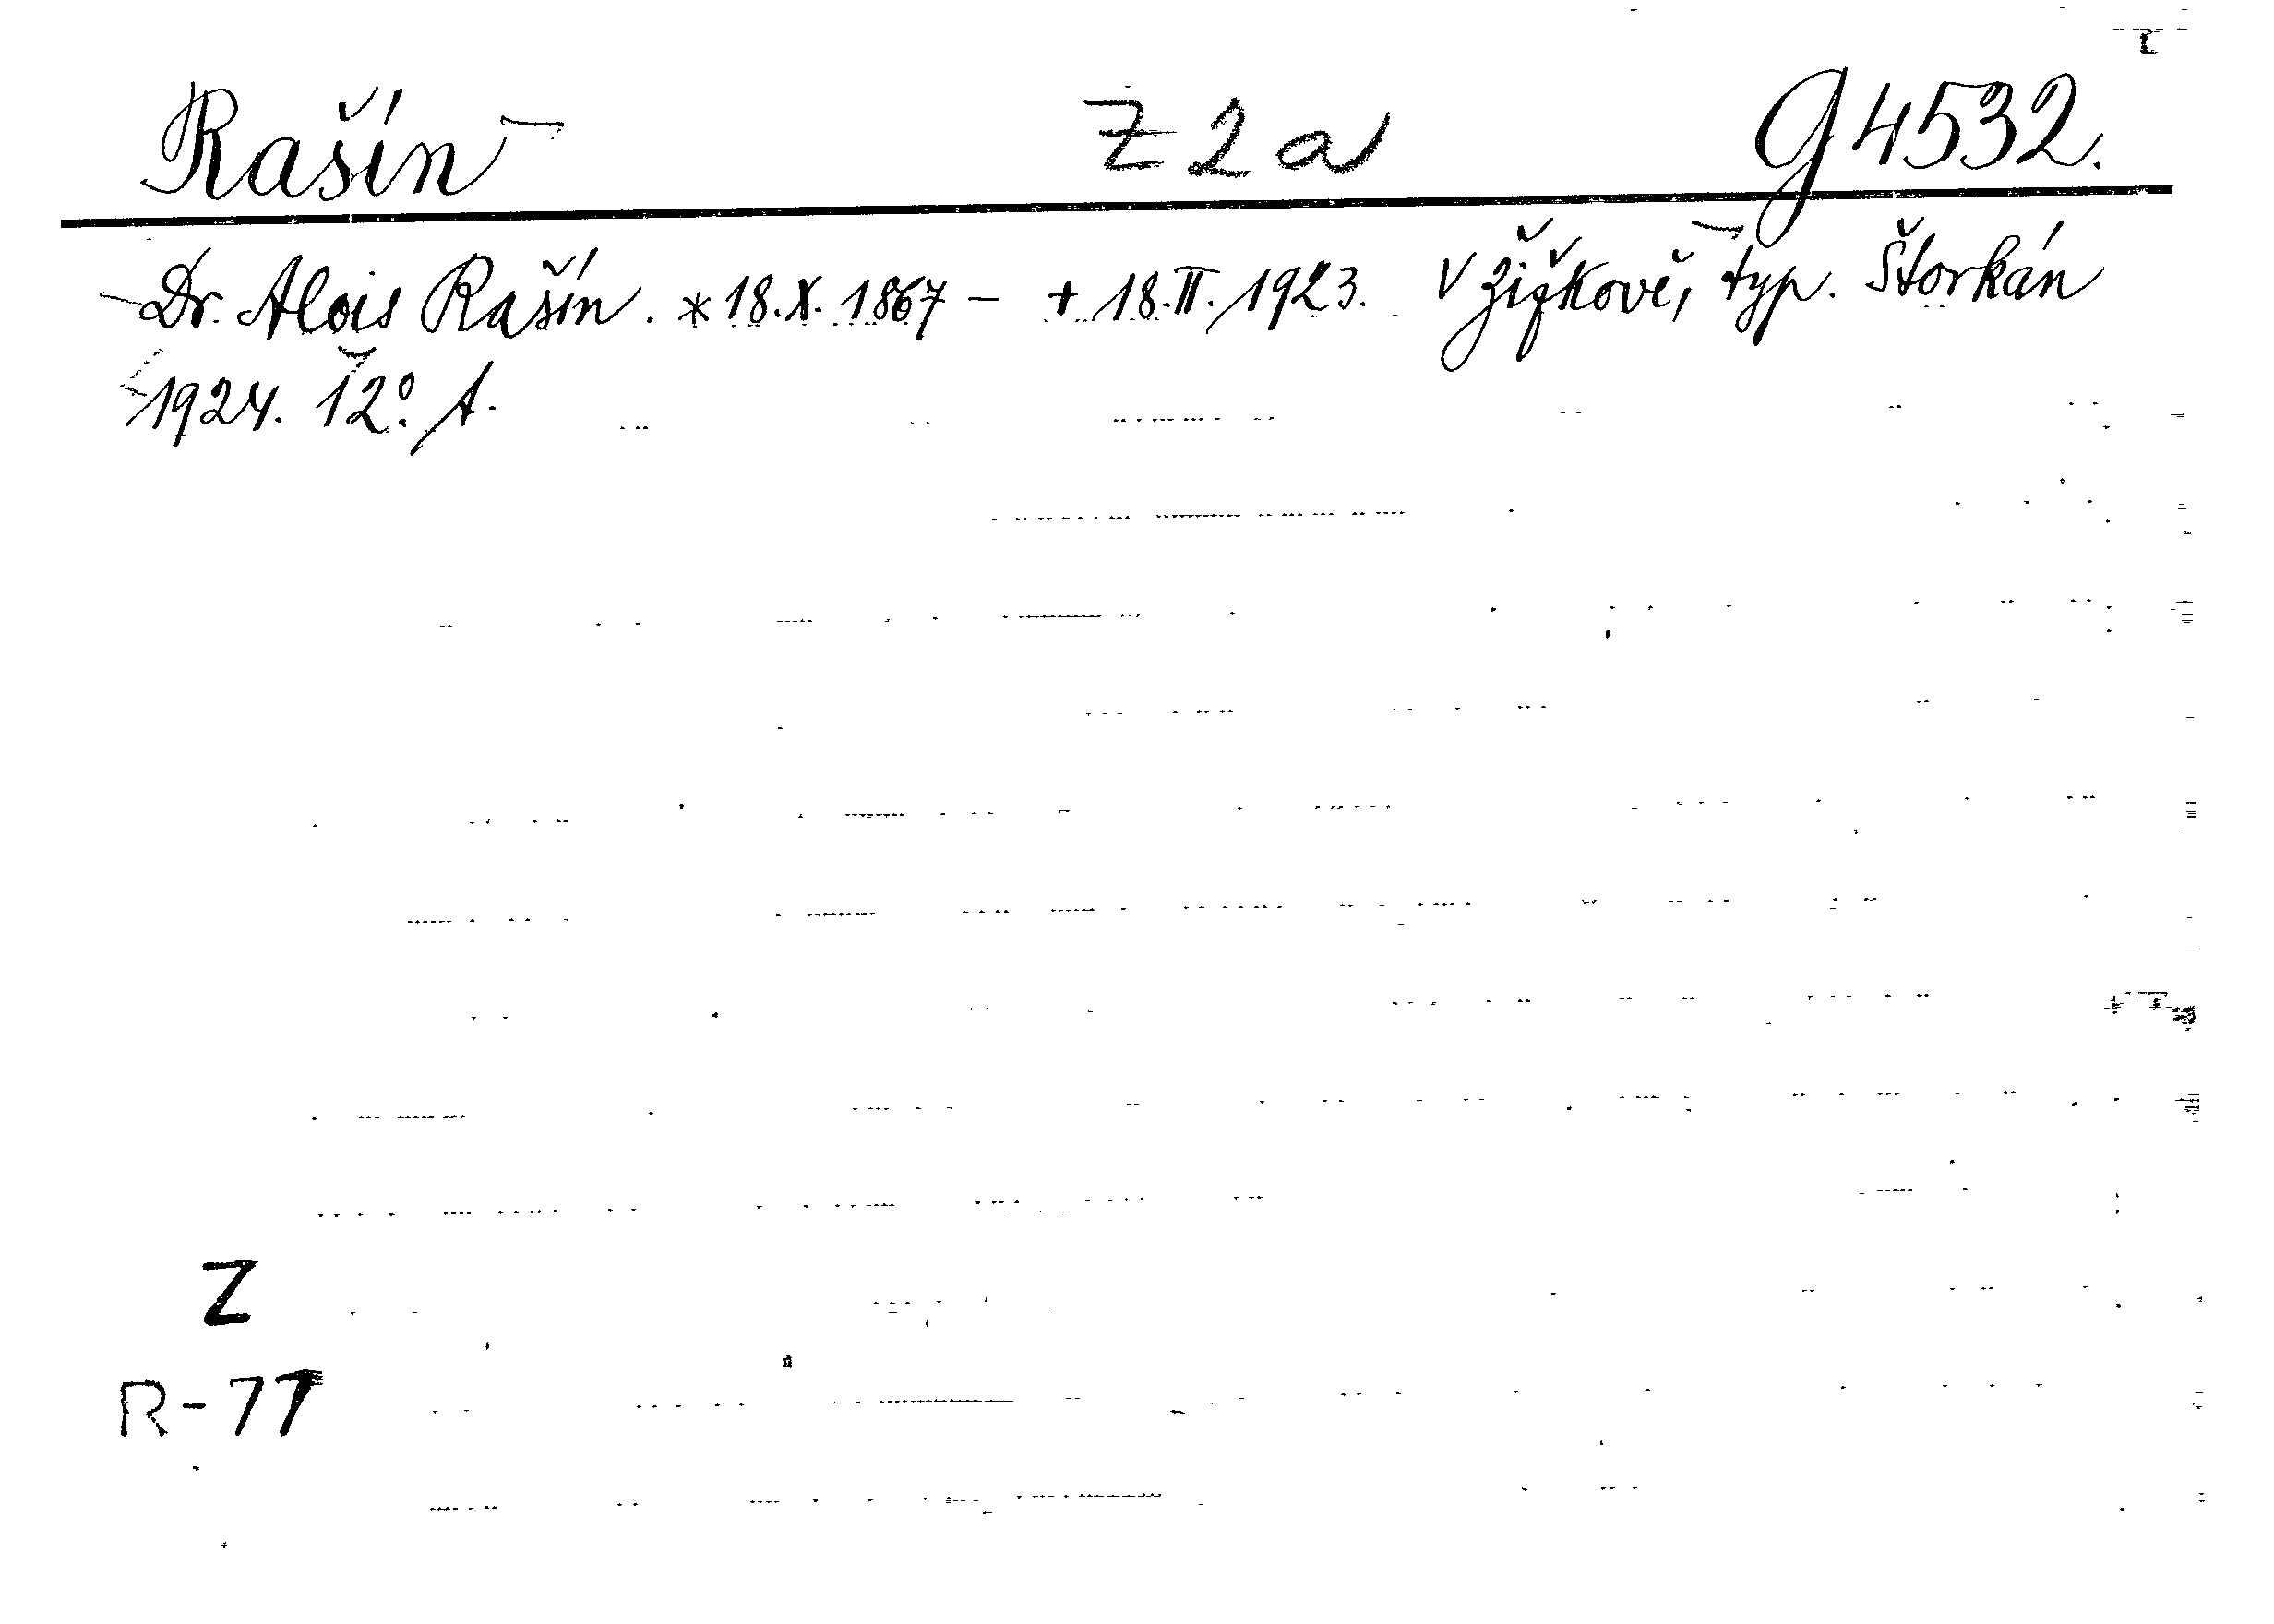 Rašín Z2a G 4532.
Dr. Alois Rašín. * 18.X. 1867 – + 18.II. 1923. V Žižkově, typ. Štorkán
1924. 12°. A.
Z
R-77